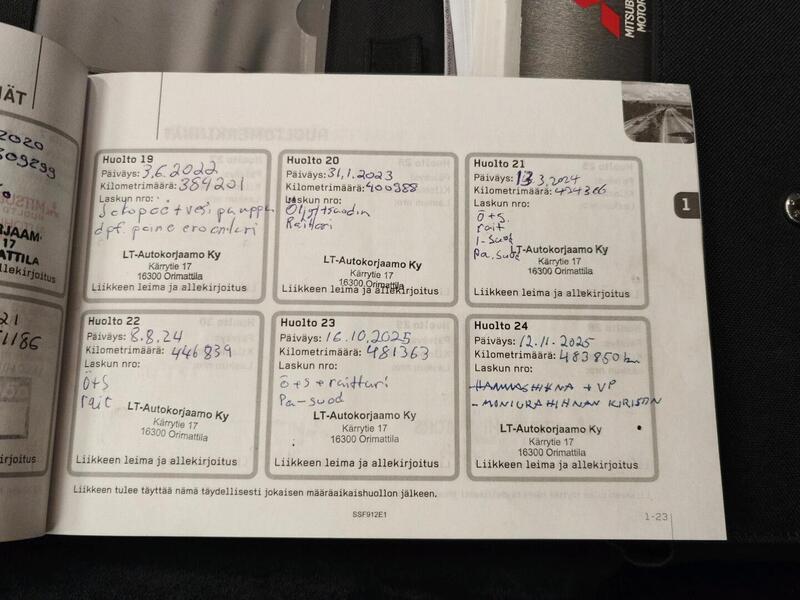 MITSUBISHI
MOTORS
ÄT
2020
309299
17
TTILA
allekirjoitus
21
1186
rjoitus
1
Huolto 19
Päiväys: 3.6.2022
Kilometrimäärä: 384201
Laskun nro:
Jakopää + vesipumppu
dpf. paine eroanturi
LT-Autokorjaamo Ky
Kärrytie 17
16300 Orimattila
Liikkeen leima ja allekirjoitus
Huolto 20
Päiväys: 31.1.2023
Kilometrimäärä: 400988
Laskun nro:
Öljyt + suodin
Raittari
LT-Autokorjaamo Ky
Kärrytie 17
16300 Orimattila
Liikkeen leima ja allekirjoitus
Huolto 21
Päiväys: 13.3.2024
Kilometrimäärä: 424366
Laskun nro:
ö+s.
rait
i-suod
pa.suod
LT-Autokorjaamo Ky
Kärrytie 17
16300 Orimattila
Liikkeen leima ja allekirjoitus
Huolto 22
Päiväys: 8.8.24
Kilometrimäärä: 446839
Laskun nro:
ö+s
rait
LT-Autokorjaamo Ky
Kärrytie 17
16300 Orimattila
Liikkeen leima ja allekirjoitus
Huolto 23
Päiväys: 16.10.2025
Kilometrimäärä: 481363
Laskun nro:
ö+s+raittari
Pa-suod
LT-Autokorjaamo Ky
Kärrytie 17
16300 Orimattila
Liikkeen leima ja allekirjoitus
Huolto 24
Päiväys: 12.11.2025
Kilometrimäärä: 483850 km
Laskun nro:
-HAMMASHIHNA + VP
-MONIURAHIHNAN KIRISTIN
LT-Autokorjaamo Ky
Kärrytie 17
16300 Orimattila
Liikkeen leima ja allekirjoitus
Liikkeen tulee täyttää nämä täydellisesti jokaisen määräaikaishuollon jälkeen.
SSF912E1
1-23